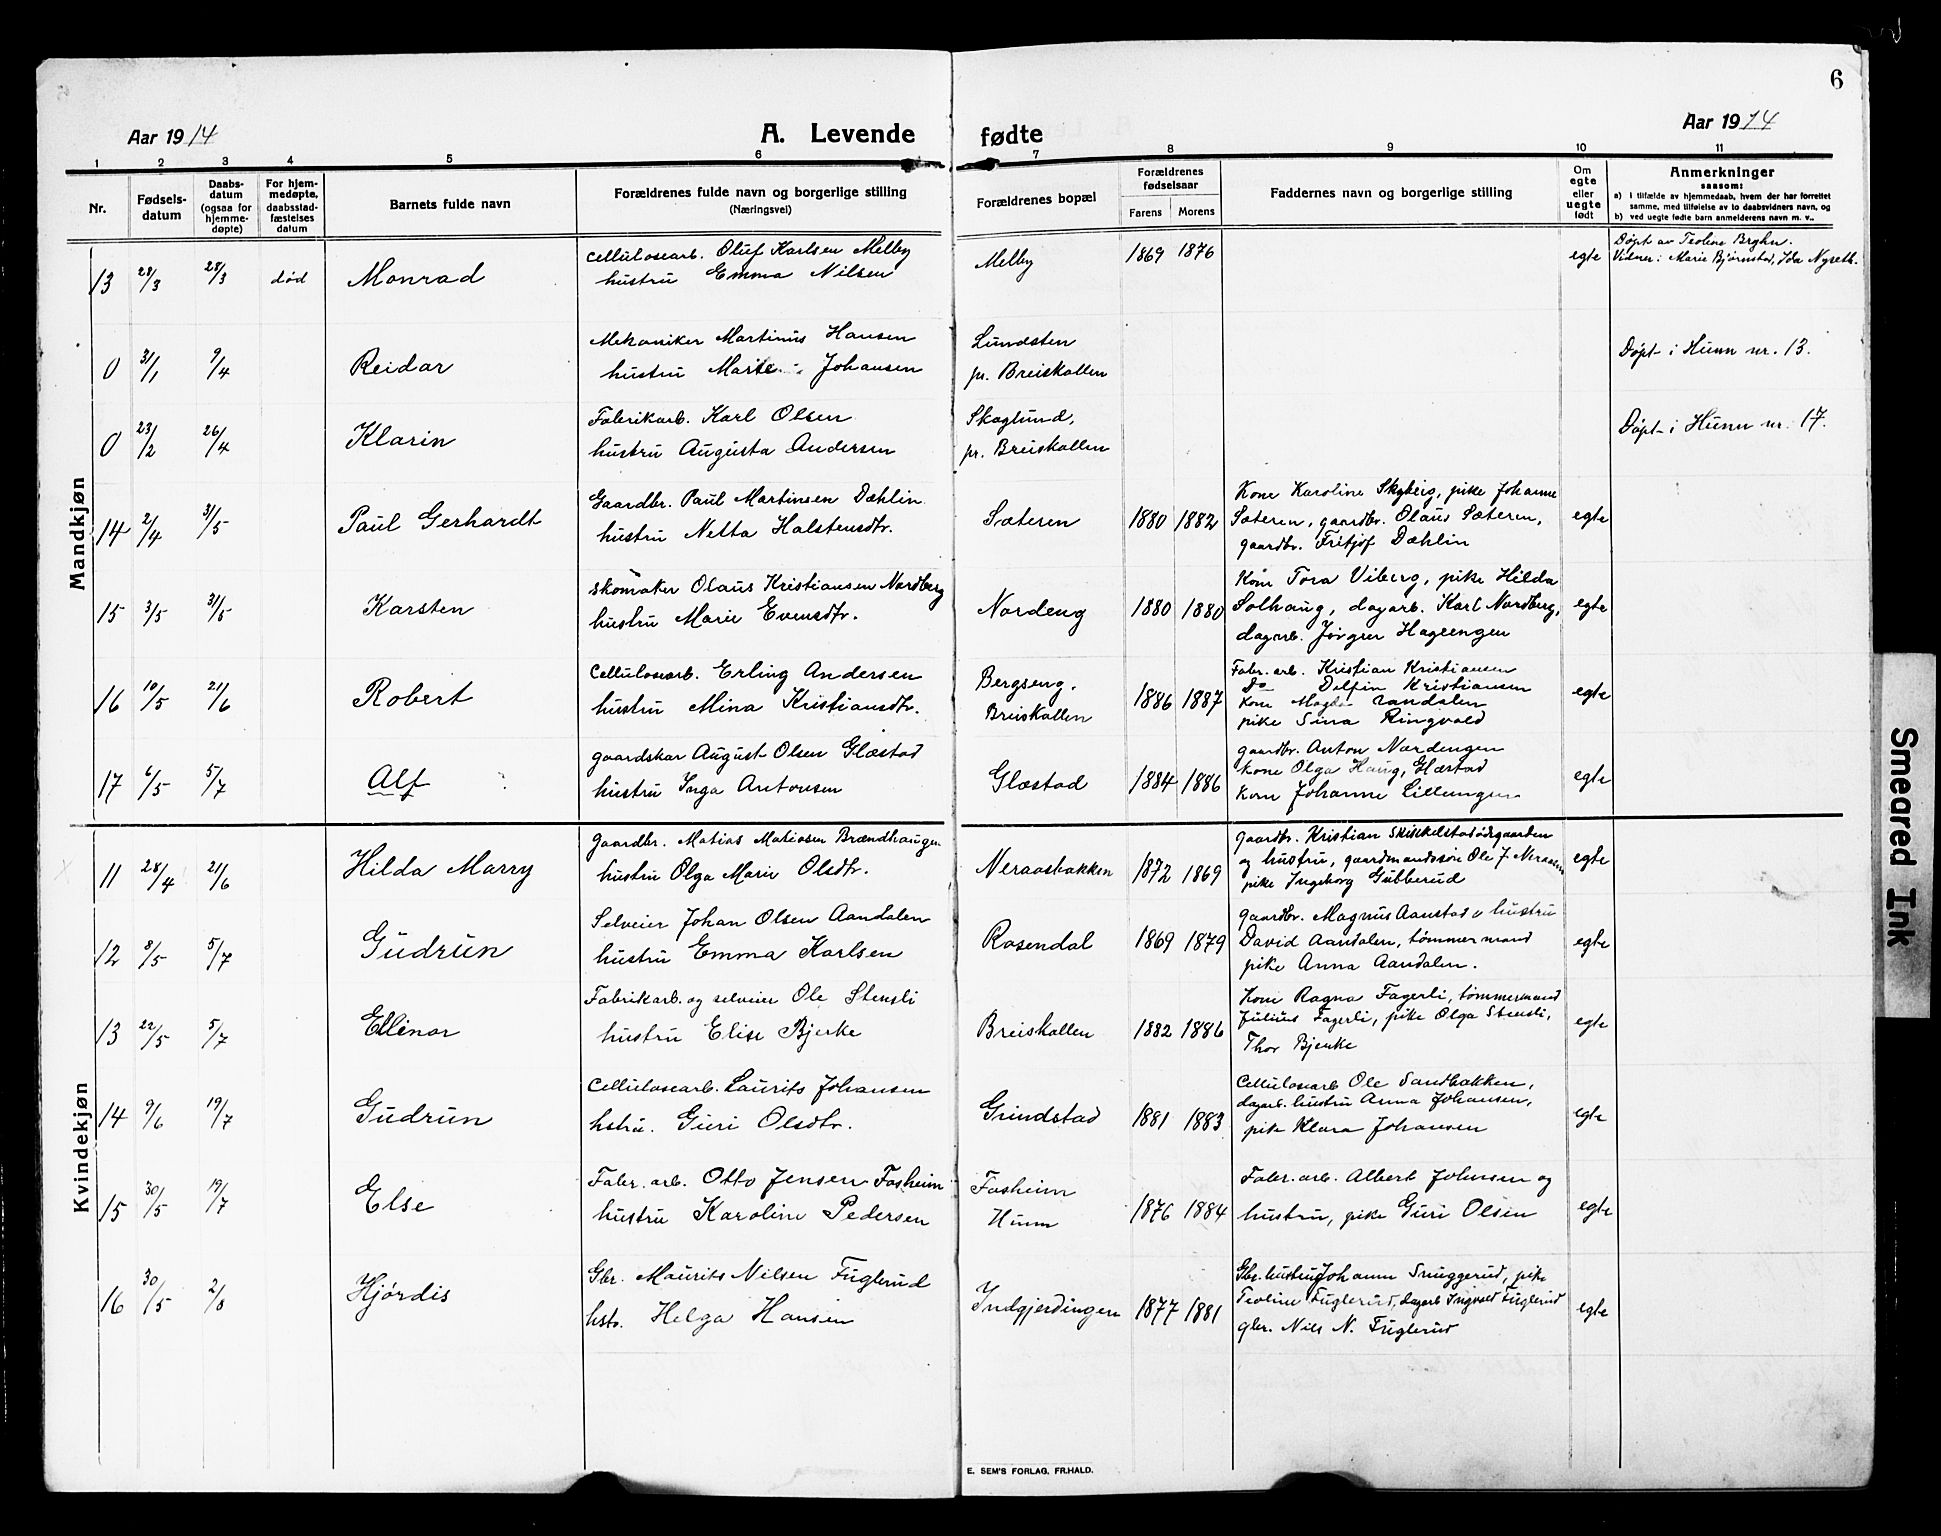 6
Aar 1914
A. Levende fødte
Aar 1914
1 2 3 4 5 6 7 8 9 10 11
Nr.
Fødselsdatum
Daabsdatum (ogsaa for hjemmedøpte)
For hjemmedøpte, daabsstadfæstelses datum
Barnets fulde navn
Forældrenes fulde navn og borgerlige stilling
(Næringsvei)
Forældrenes bopæl
Forældrenes fødselsaar
Farens Morens
Faddernes navn og borgerlige stilling
Om egte eller uegte født
Anmerkninger
saasom:
a) i tilfælde av hjemmedaab, hvem der har forrettet
samme, med tilføielse av to daabsvidners navn, og
b) ved uegte fødte barn anmelderens navn m. v.,
Mandkjøn
13 28/3 28/3 død Monrad
Cellulosearb. Oluf Karlsen Melby
hustru Emma Nilsen
Melby 1869 1876 egte
Døpt av Teoline Bryhn.
Vidner: Marie Bjørnstad, Ida Nyseth.
0 31/1 9/4 Reidar
Mekaniker Martinus Hansen
hustru Marie Johansen
Lundsten
pr. Breiskallen
Døpt i Hunn nr. 13.
0 23/2 26/4 Klarin
Fabrikarb. Karl Olsen
hustru Augusta Andersen
Skoglund,
pr. Breiskallen
Døpt i Hunn nr. 17.
14 2/4 3/5 Paul Gerhardt
Gaardbr. Paul Martinsen Dæhlin
hustru Netta Halstensdtr.
Sæteren 1880 1882
Kone Karoline Skyberg, pike Johanne
Sæteren, gaardbr. Olaus Sæteren,
gaardbr. Fritjof Dæhlin
egte
15 3/5 31/5 Karsten
Skomaker Olaus Kristiansen Nordberg
hustru Marie Evensdtr.
Nordeng 1880 1880
Kone Tora Viberg, pike Hilda
Solhaug, dagarb. Karl Nordberg,
dagarb. Jørgen Hageengen
egte
16 10/5 21/6 Robert
Cellulosearb. Erling Andersen
hustru Mina Kristiansdtr.
Bergseng,
Breiskallen
1886 1887
Fabr. arb. Kristian Kristiansen
Do Delfin Kristiansen
Kone Magda Aandalen
pike Sina Ringvold
egte
17 6/5 5/7 Alf
gaardskar August Olsen Glæstad
hustru Inga Antonsen
Glæstad 1884 1886
gaardbr. Anton Nordengen
Kone Olga Haug, Glæstad
Kone Johanne Lilleengen
egte
Kvindekjøn
11 28/4 21/6 Hilda Marry
Gaardbr. Matias Matiasen Brændhaugen
hustru Olga Marie Olsdtr.
Neraasbakken 1872 1869
gaardbr. Kristian Skikkelstadødegaarden
og hustru, gaardmandssøn Ole J. Neraasen
pike Ingeborg Gubberud
egte
12 8/5 5/7 Gudrun
Selveier Johan Olsen Aandalen
hustru Emma Karlsen
Rosendal 1869 1879
gaardbr. Magnus Aanstad o hustru
David Aandalen, tømmermand
pike Anna Aandalen.
egte
13 22/5 5/7 Ellinor
Fabrikarb. og selveier Ole Stensli
hustru Elise Bjerke
Breiskallen 1882 1886
Kone Ragna Fagerli, tømmermand
Julius Fagerli, pike Olga Stensli,
Thor Bjerke
egte
14 9/6 19/7 Gudrun
Cellulosearb. Laurits Johansen
hstru. Guri Olsdtr.
Grindstad 1881 1883
Cellulosearb Ole Sandbakken,
dagarb. hustru Anna Johansen,
pike Klara Johansen
egte
15 30/5 19/7 Else
Fabr. arb. Otto Jensen Fosheim
hustru Karoline Pedersen
Fosheim
Hunn
1876 1884
Fabr. arb. Albert Johnsen og
hustru, pike Guri Olsen
egte
16 30/5 2/8 Hjørdis
Gbr. Maurits Nilsen Fuglerud
hstr. Helga Hansen
Indgjerdingen 1877 1881
Gbr. hustru Johanne Snuggerud, pike
Teoline Fuglerud, dagarb Ingvald Fuglerud
gbr. Nils N. Fuglerud
egte
E. SEM'S FORLAG, FR.HALD.
Smeared Ink